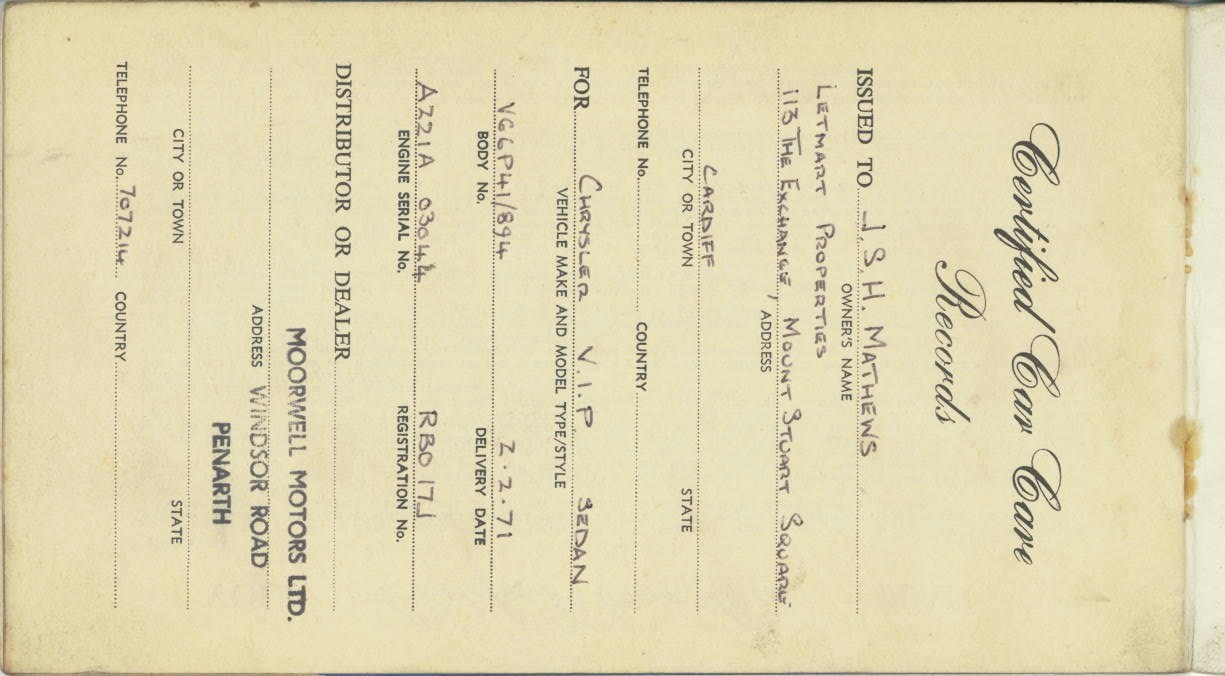 Certified Car Care
Records
ISSUED TO J. S. H. MATHEWS
OWNER'S NAME
LETMART PROPERTIES
113 THE EXCHANGE, MOUNT STUART SQUARE
ADDRESS
CARDIFF
CITY OR TOWN STATE
TELEPHONE No. COUNTRY
FOR CHRYSLER V.I.P SEDAN
VEHICLE MAKE AND MODEL TYPE/STYLE
VG6P41/894 2.2.71
BODY No. DELIVERY DATE
A221A 03044 RBO 17J
ENGINE SERIAL No. REGISTRATION No.
DISTRIBUTOR OR DEALER
MOORWELL MOTORS LTD.
ADDRESS WINDSOR ROAD
PENARTH
CITY OR TOWN STATE
TELEPHONE No. 707214 COUNTRY